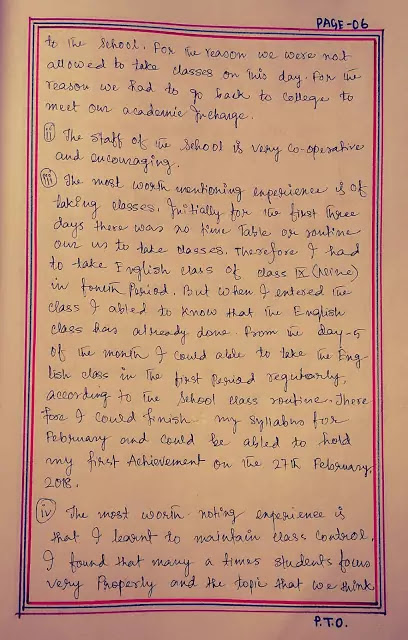 PAGE-06
to the School. For the reason we were not
allowed to take classes on this day. For the
reason we had to go back to college to
meet our academic Incharge.
ii The staff of the School is very co-operative
and encouraging.
iii The most worth mentioning experience is of
taking classes. Initially for the first three
days there was no time Table or routine
our us to take classes. Therefore I had
to take English class of class IX (Nine)
in fourth Period. But when I entered the
class I abled to know that the English
class has already done. From the day-5
of the month I could able to take the Eng
lish class in the first Period regularly,
according to the School class routine. There
fore I could finish my syllabus for
February and could be abled to hold
my first Achievement on the 27th February,
2018.
iv The most worth noting experience is
that I learnt to maintain class control.
I found that many a times students focus
very Properly and the topic that we think
P.T.O.